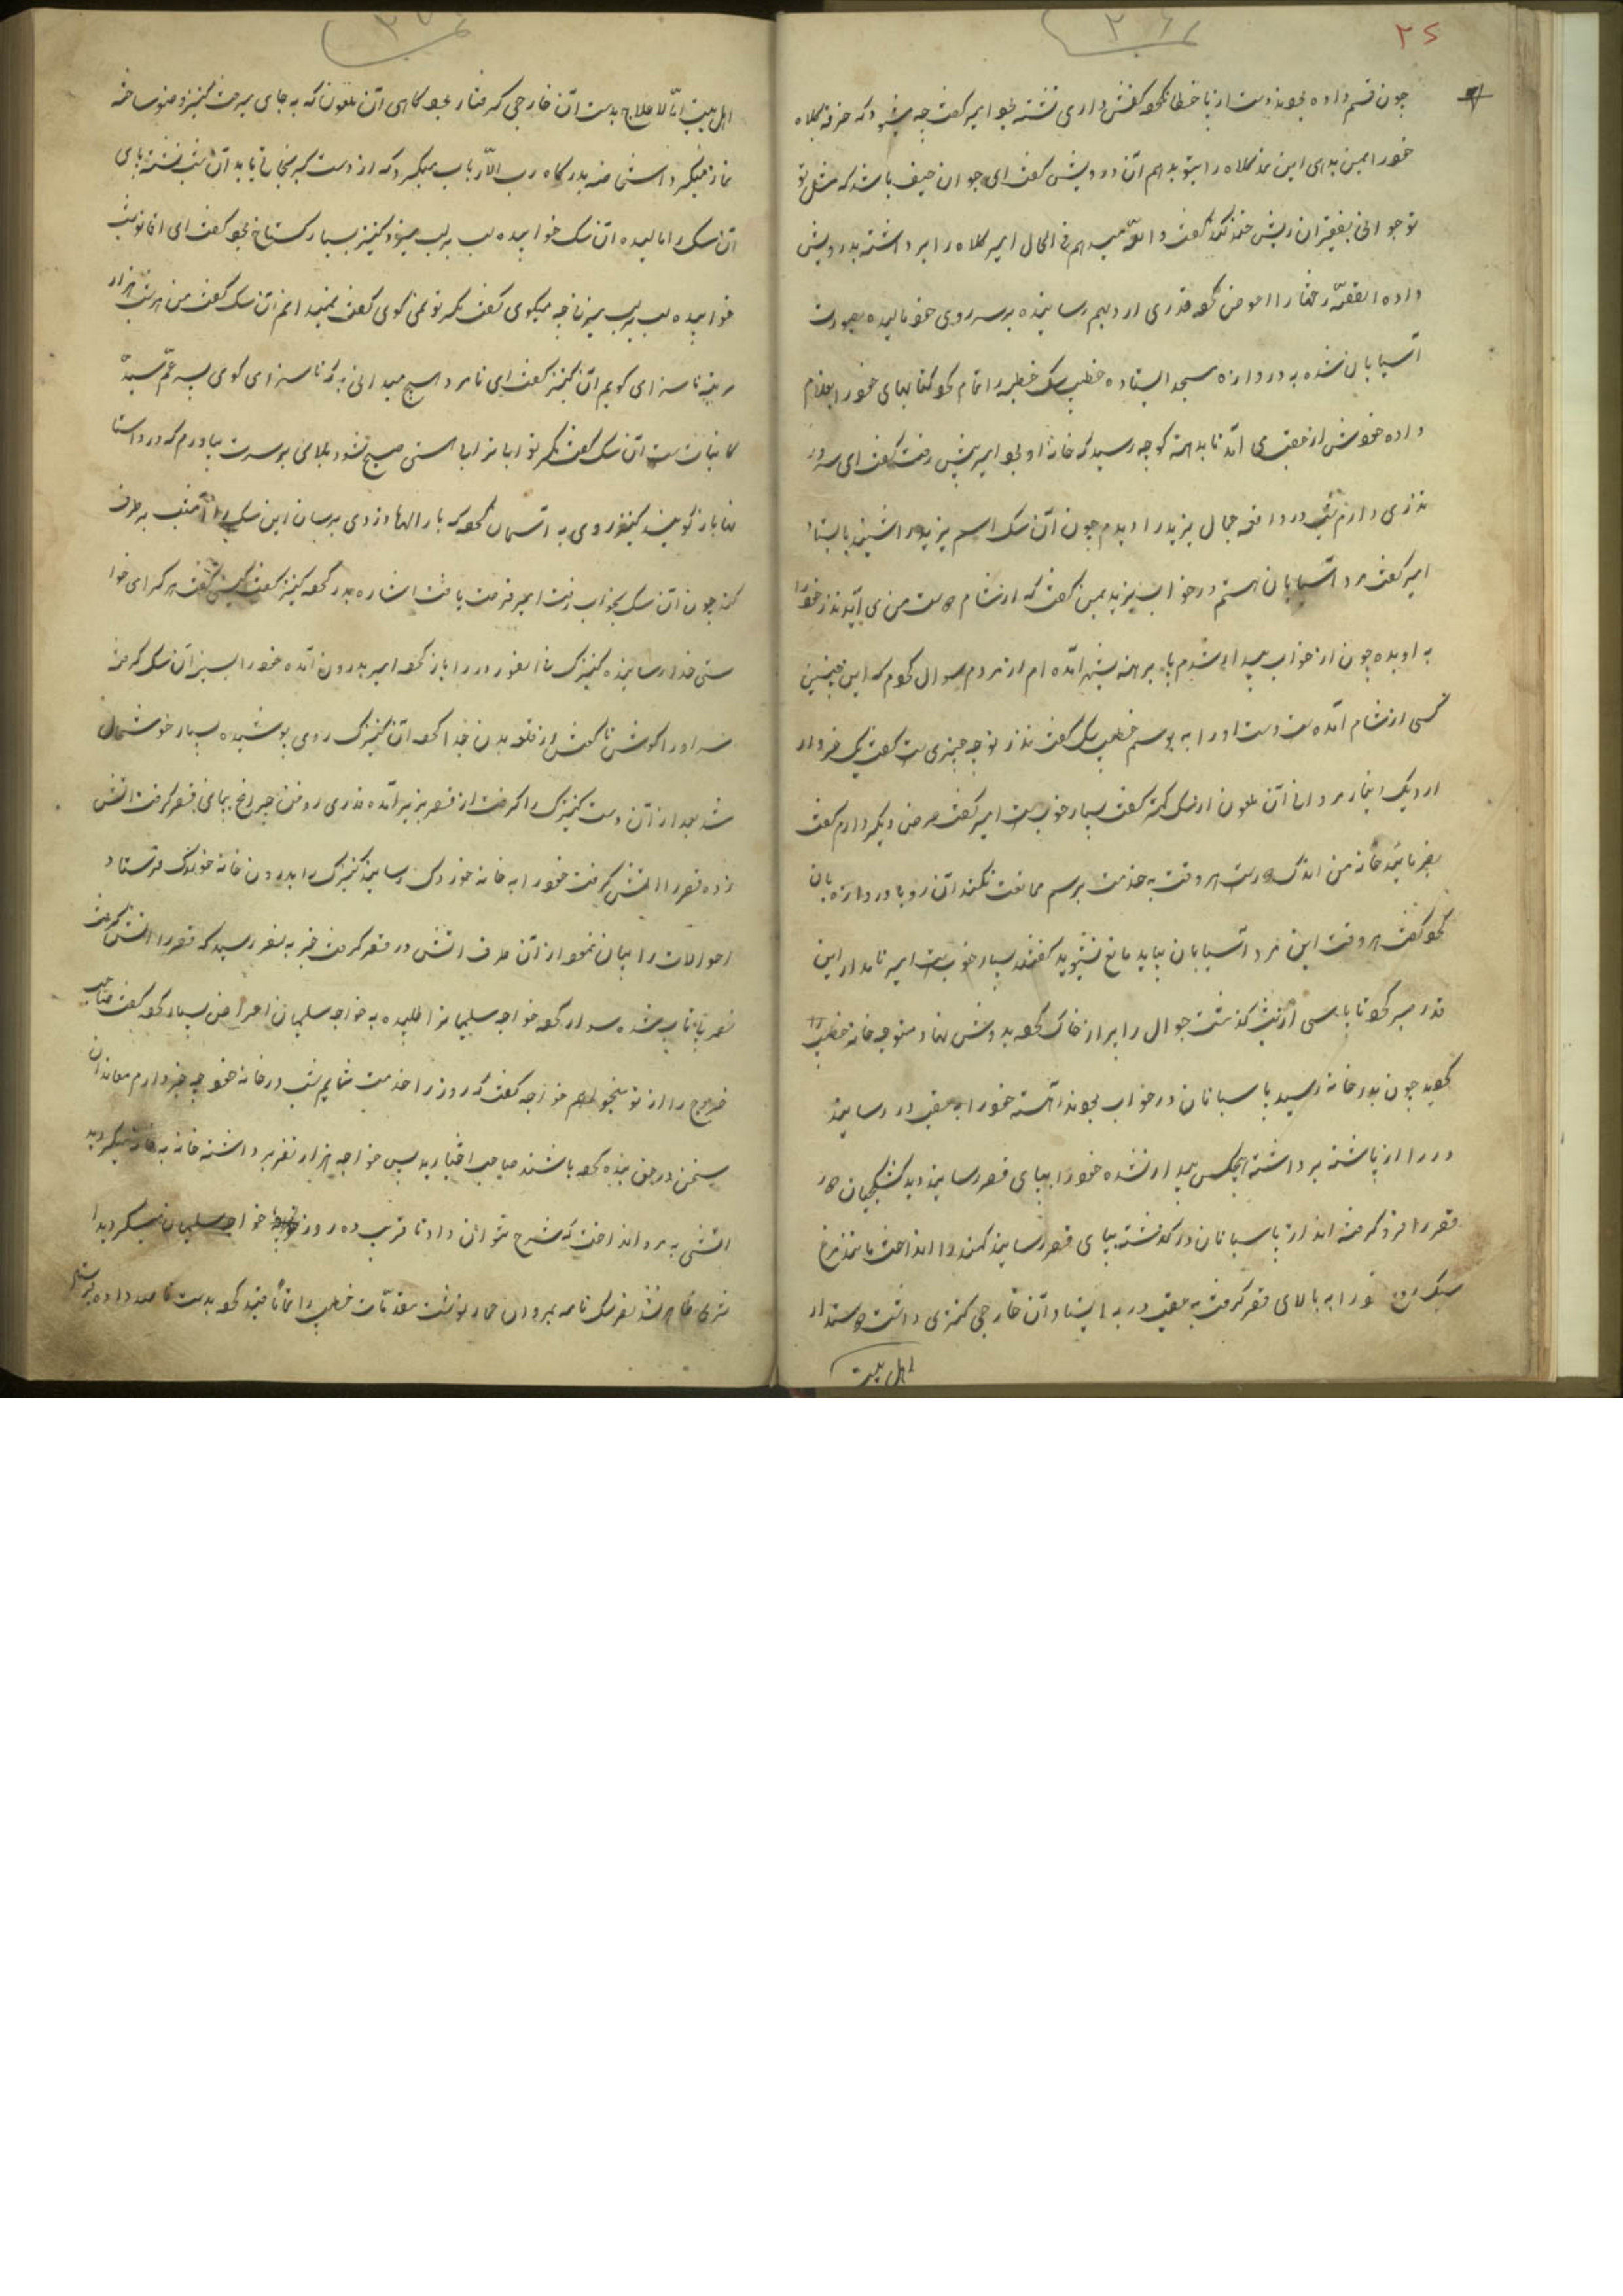 ۳۶
۲۶
چون قسم داده بودند دست از پا خطا نکرد کفش داری نشسته بود امیر گفت چه میشود که خرقه کلاه
خود را بمن بدهی این نمد کلاه را بتو بدهم آن درویش گفت ای جوان حیف باشد که مثل تو
نوجوانی بفقیران ریش خند کند گفت والله میدهم فی الحال امیر کلاه را برداشته بدرویش
داده القصّه رخت را عوض کرد قدری آرد بهم رسانیده بر سر و روی خود مالیده بصورت
آسیابان شده به دروازه مسجد ایستاده خطیب سک خطبه را تمام کرد کتابهای خود را بغلام
داده خودش از عقب می آمد تا بدهنه کوچه رسید که خانه او بود امیر پیش رفت گفت ای سرور
نذری دارم شب در واقعه جمال یزید را دیدم چون آن سک اسم یزید را شنید بایستاد
امیر گفت مرد آسیابان هستم در خواب یزید بمن گفت که از شام دوست من می آید نذر خود را
به او بده چون از خواب بیدار شدم پا برهنه بشهر آمده ام از مردم سوال کردم که این چنین
کسی از شام آمده است دست او را به بوسم خطیب سک گفت نذر تو چه چیزی است گفت یک خروار
آرد یک انبار مروان آن ملعون از سک کمتر گفت بسیار خوب است امیر گفت عرض دیگر دارم گفت
بفرمائید خانه من اندک دور است هر وقت به خدمت برسم ممانعت نکنند آن رو با دروازه بان
کرد گفت هر وقت این مرد آسیابان بیاید مانع نشوید گفتند بسیار خوب است امیر نامدار این
قدر صبر کرد تا پاسی از شب گذشت جوال را پر از خاک کرد بدوش نهاد متوجه خانه خطیب را
کردید چون بدر خانه رسید پاسبانان در خواب بودند آهسته خود را به عقب در رسانید
در را از پاشنه برداشته هیچکس بیدار نشده خود را بپای قصر رسانید دید کشکچیان دور
قصر را فرو گرفته اند از پاسبانان درگذشته بپای قصر رسانید کمند را انداخت مانند مرغ
سبک روح خود را به بالای قصر گرفت به عقب در به ایستاد آن خارجی کنیزی داشت دوستدار
اهل بیت
اهل بیت امّا لا علاج بدست آن خارجی گرفتار بود گاهی آن ملعون که به جای میرفت کنیز وضو ساخته
نماز میکرد آستی ضه بدرگاه رب الارباب میکرد که از دست کبر نجات یابد آن شب نشسته پای
آن سک را مالیده آن سک خوابیده لب بر لب میزد کنیز بسیار گستاخ بود گفت ای آقا تو شب
خوابیده لب بر لب میزنی چه میکوی گفت مگر تو نمی کوی گفت نمیدانم آن سک گفت من هر شب هزار
مرتبه ناسزای گویم آن کنیز گفت ای نامرد هیچ میدانی به که ناسزای گوی پسر عمّ سید
کاینات است آن سک گفت مگر تو ابا ترابا هستی صبح شود بلای بر سرت بیاورم که در داستا
نها باز گویند کنیز روی به آسمان کرد که بار الها دزدی برسان این سک را
کند چون آن سک بخواب رفت امیر فرصت یافت اشاره بدر کرد کنیز گفت کیستی گفت هر که رای خوا
ستی خدا رسانیده کنیزک فی الفور در را باز کرد امیر بدرون آمده خود را بسر آن سک گرفته
سر او را گوش تا گوش از قلعه بدن جدا کرد آن کنیزک روی پوشیده بسیار خوشحال
شد بعد از آن دست کنیزک را گرفت از قصر بزیر آمده قدری روغن چراغ بپای قصر گرفت آتش
زده قصر را آتش گرفت خود را به خانه خوردک رسانید کنیزک را بدرون خانه خوردک فرستاد
احوالات را بیان نمود از آن طرف آتش در قصر گرفت خبر به نصر رسید که قصر را آتش گرفت
نصر بیتاب شده سوار کرد خواجه سلیمان را طلبیده به خواجه سلیمان اعراض بسیار کرد گفت صاحب
خروج را از تو میخواهم خواجه گفت که روز را خدمت شمایم شب در خانه خود چه خبر دارم معاندان
سخن در حق بنده کرده باشند صاحب اختیارید پس خواجه هزار نفر برداشته خانه به خانه میگردید
آتشی به مرو انداخت که شرح نتوانی داد تا قریب ده روز خواجه سلیمان میگردیدا
نری ظاهر نشد نصر سک نامه بمروان حمار نوشت مقدمات خطیب را تماماً قید کرد بدست قاصد داده فرستاد